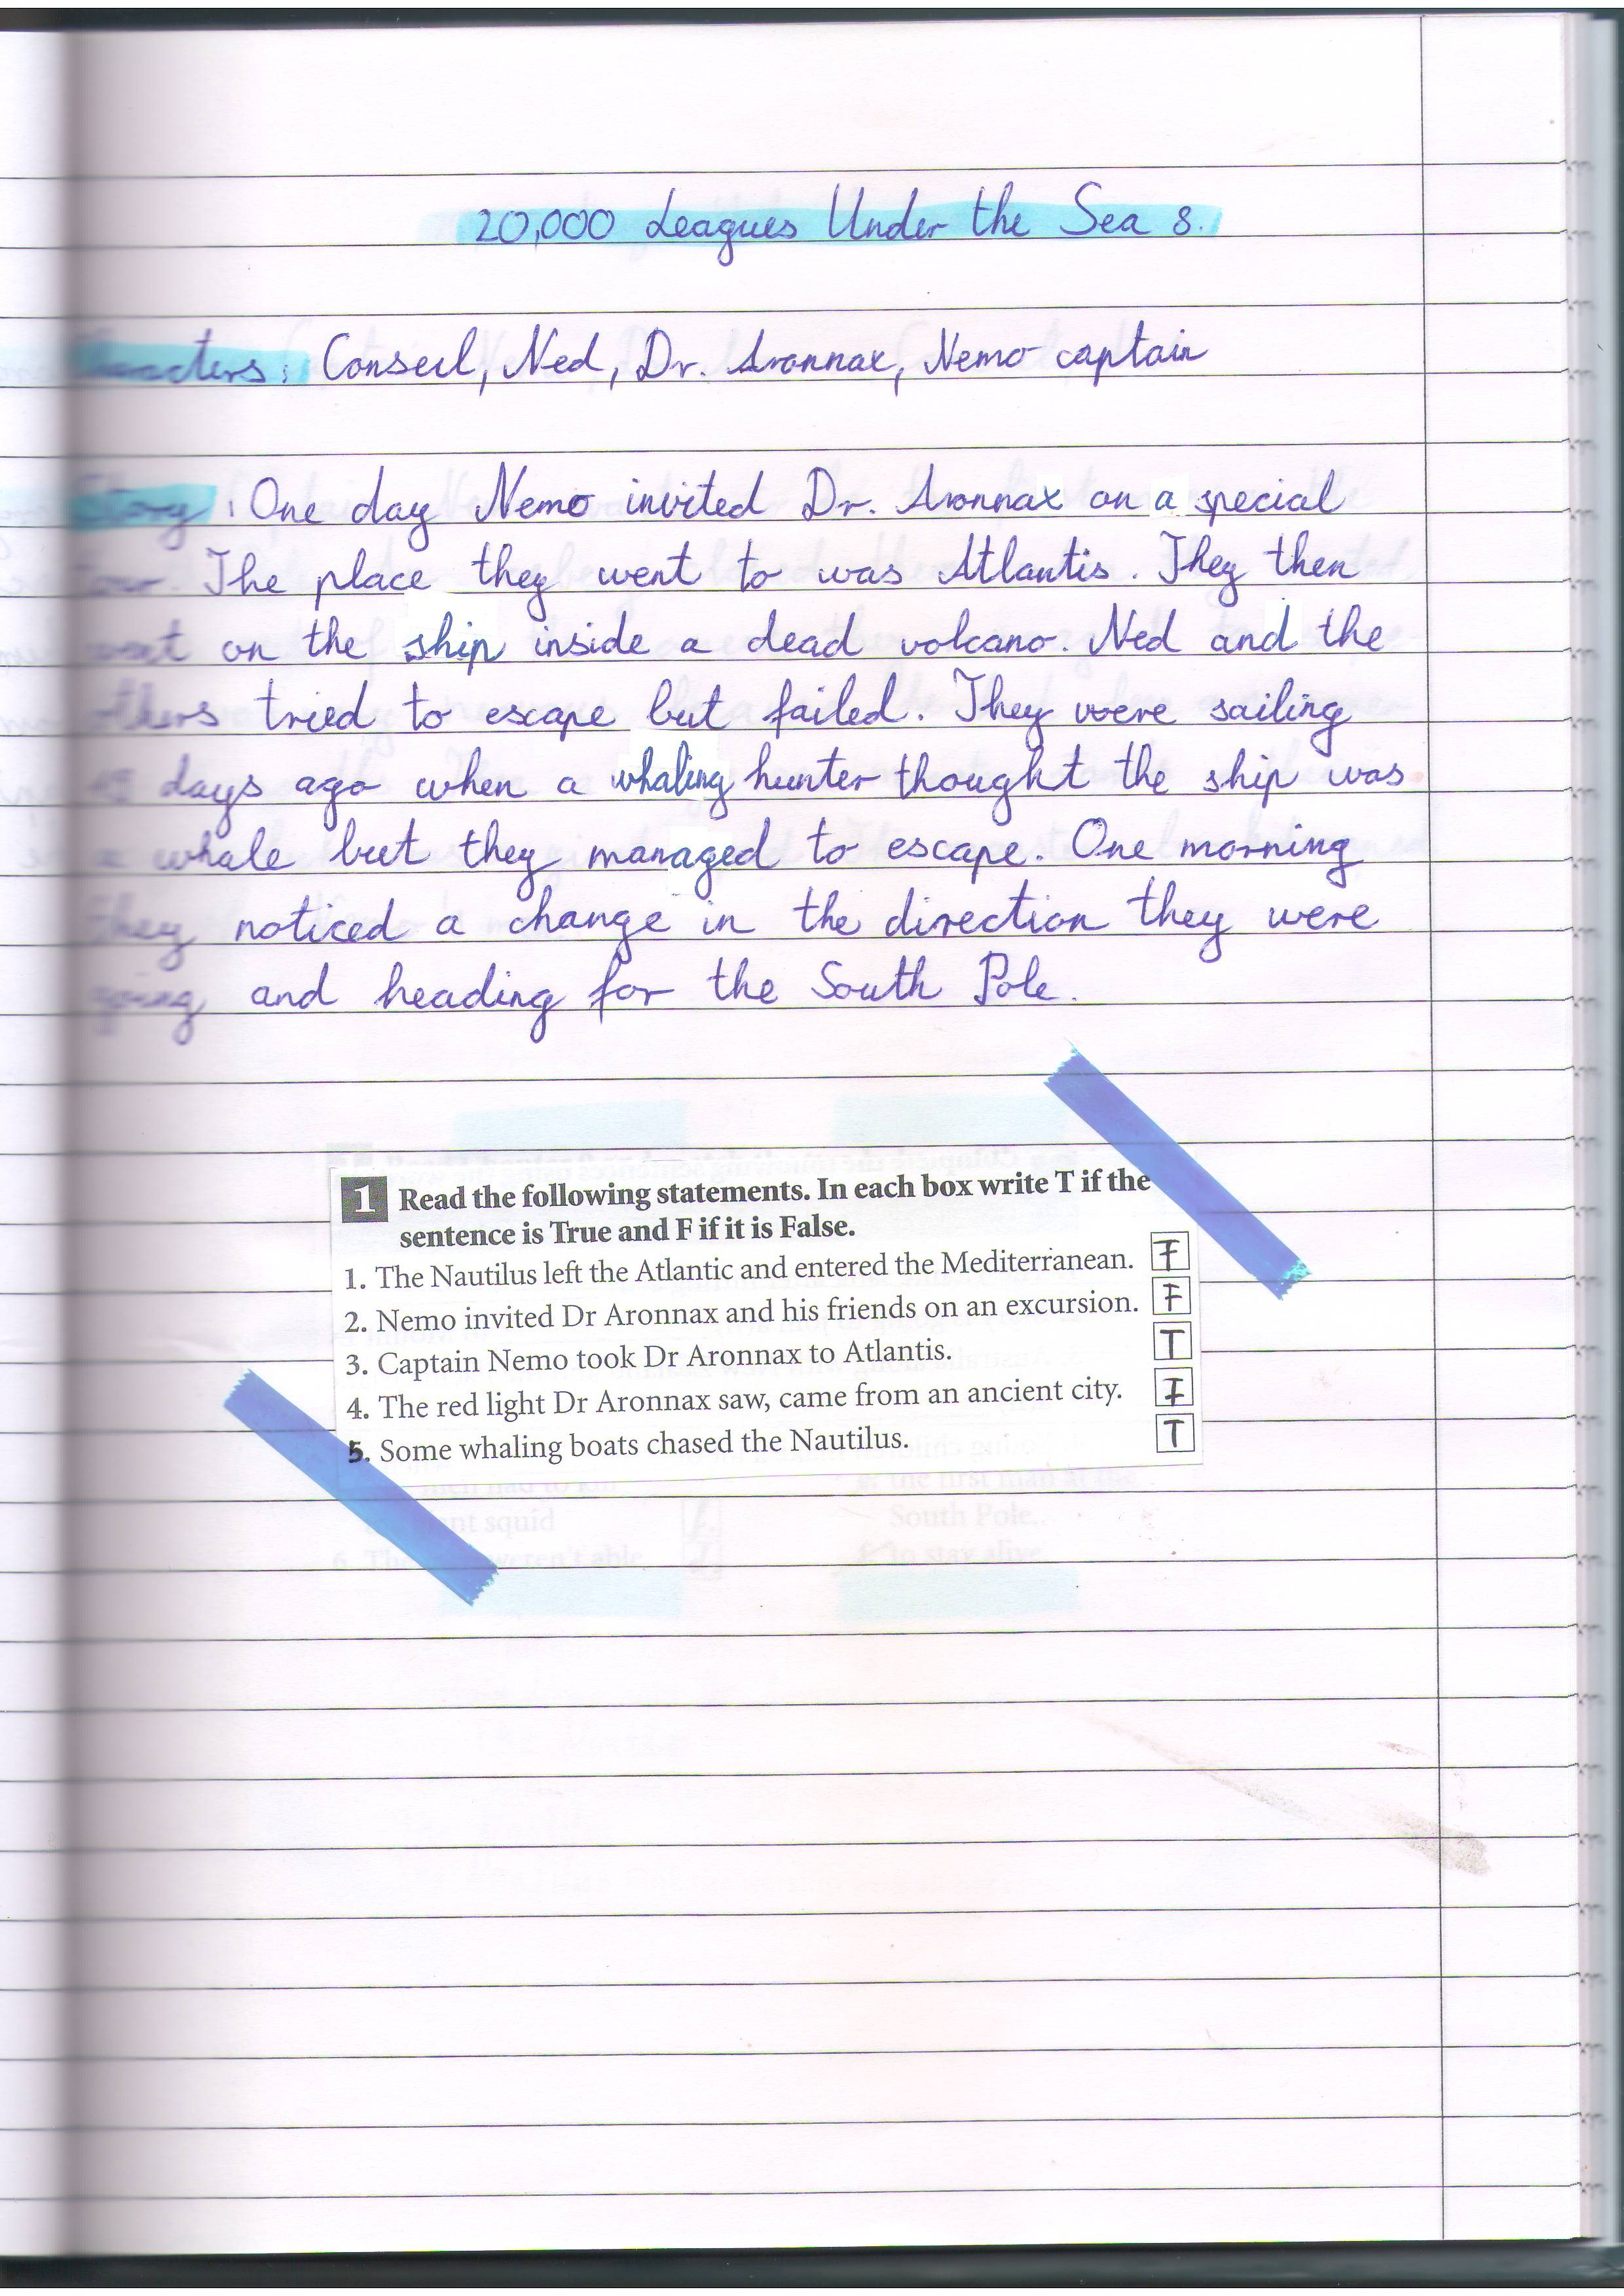 20,000 Leagues Under the Sea 8.
Characters: Conseil, Ned, Dr. Aronnax, Nemo captain
Story: One day Nemo invited Dr. Aronnax on a special
tour. The place they went to was Atlantis. They then
went on the ship inside a dead volcano. Ned and the
others tried to escape but failed. They were sailing
days ago when a whaling hunter thought the ship was
a whale but they managed to escape. One morning
they noticed a change in the direction they were
going and heading for the South Pole.
1 Read the following statements. In each box write T if the
sentence is True and F if it is False.
1. The Nautilus left the Atlantic and entered the Mediterranean. F
2. Nemo invited Dr Aronnax and his friends on an excursion. F
3. Captain Nemo took Dr Aronnax to Atlantis. T
4. The red light Dr Aronnax saw, came from an ancient city.
5. Some whaling boats chased the Nautilus. T